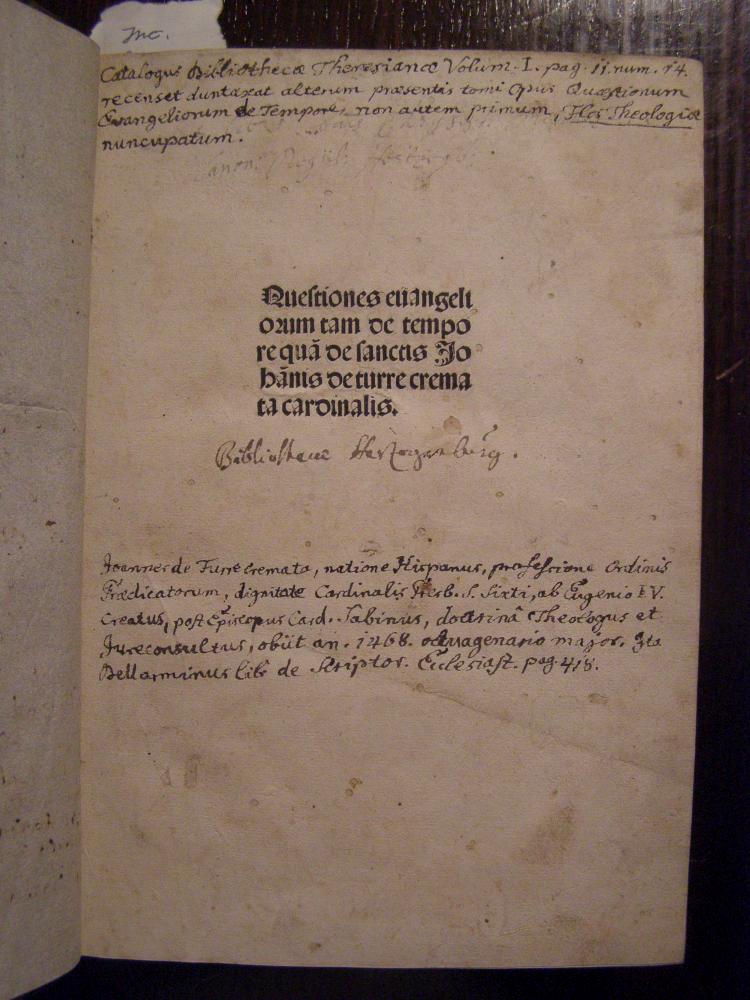 Inc.
Catalogus Bibliothecæ Theresianæ Volum. I. pag. 11. num. 14.
recenset duntaxat alterum præsentis tomi opus Quæstionum
Evangeliorum de Tempore, non autem primum, Flos Theologiæ
nuncupatum.
Canon. Regul.
Questiones euangeli
orum tam de tempo
re quã de sanctis Jo
hãnis de turre crema
ta cardinalis.
Bibliothecae Herzogenburg.
Joannes de Turrecremata, natione Hispanus, professione Ordinis
Prædicatorum, dignitate Cardinalis Presb. S. Sixti, ab Eugenio IV.
Creatus, post Episcopus Card. Sabinus, doctrinâ Theologus et
Jureconsultus, obiit an. 1468. octuagenario major. Ita
Bellarminus libr de Scriptor. Ecclesiast. pag. 418.